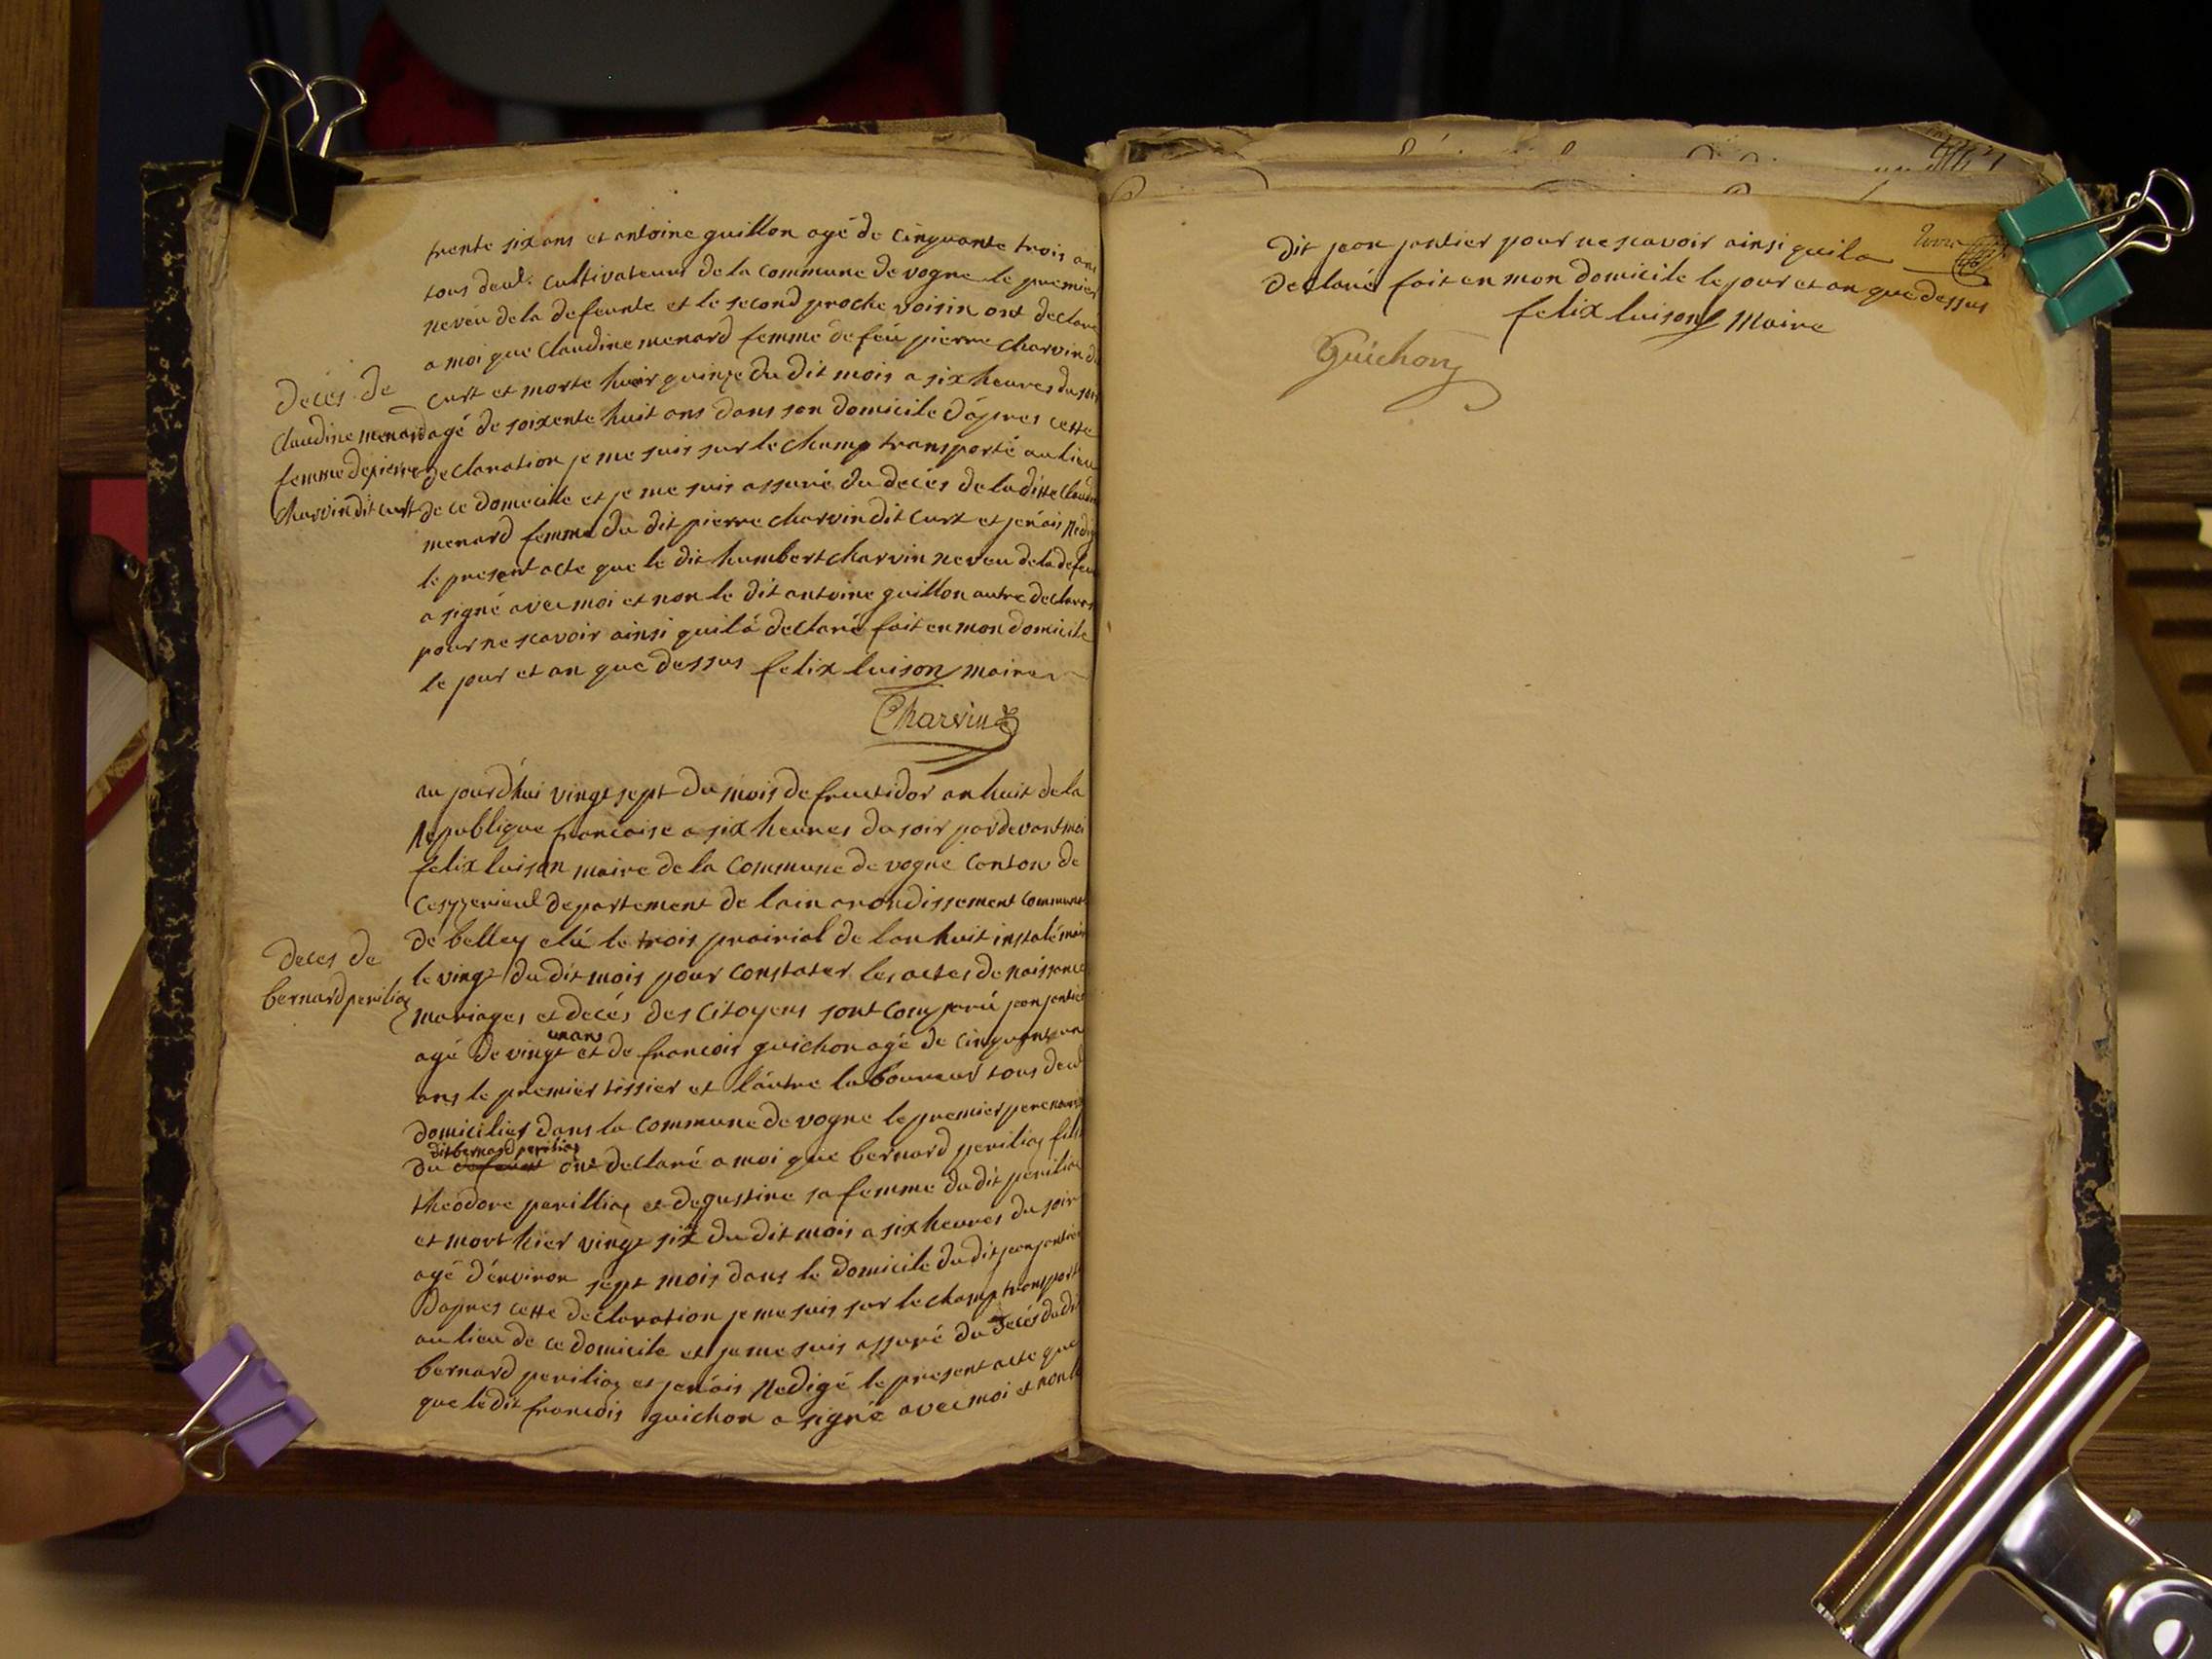 trente six ans et antoine guillon agé de cinquante trois ans
tous deux cultivateurs de la commune de vogne le premier
neveu de la defeunte et le second proche voisin ont declaré
a moi que Claudine menard femme de feü pierre charvin dit
Curt et morte hier quinze du dit mois a six heures du soir
agé de soixente huit ans dans son domicile d'apres cette
declaration je me suis sur le champ transporté au lieu
de ce domicile et je me suis assuré du decés de la ditte Claudine
menard femme du dit pierre charvin dit Curt et jen'ais redigé
le present acte que le dit humbert charvin neveu de la defeunte
a signé avec moi et non le dit antoine guillon autre declarant
pour ne scavoir ainsi quil á declaré fait en mon domicile
le jour et an que dessus felix luison maire
Charvin
deces de
Claudine menard
femme de pierre
charvin dit curt
au jourd'hui vingt sept du mois de fructidor an huit de la
Republique francaise a six heures du soir pardevant moi
felix luison maire de la Commune de vogne Conton de
Ceyzerieux departement de lain arondissement communal
de belley elü le trois prairial de lan huit instalé maire
le vingt du dit mois pour constater les actes de naissance
mariages et decés des citoyens sont comparü jean jantier
agé de vingt unans et de francois guichon agé de cinquante un
ans le premier tissier et l'autre laboureur tous deux
domiciliés dans la commune de vogne le premier pere nouricier
du defeunt dit bernard periliaz ont declaré a moi que bernard periliaz fils
theodore perilliaz et degustine sa femme du dit periliaz
et mort hier vingt six du dit mois a six heures du soir
agé d'environ sept mois dans le domicile du dit jean jantier
D'apres cette declaration je me suis sur le champ transporté
au lieu de ce domicile et je me suis assuré du decés du dit
bernard periliaz et jen'ais Redigé le present acte que
que le dit francois guichon a signé avec moi et non le
deces de
bernard periliaz
dit jean jantier pour ne scavoir ainsi quil a
declaré fait en mon domicile le jour et an que dessus
felix luison Maire
Guichon